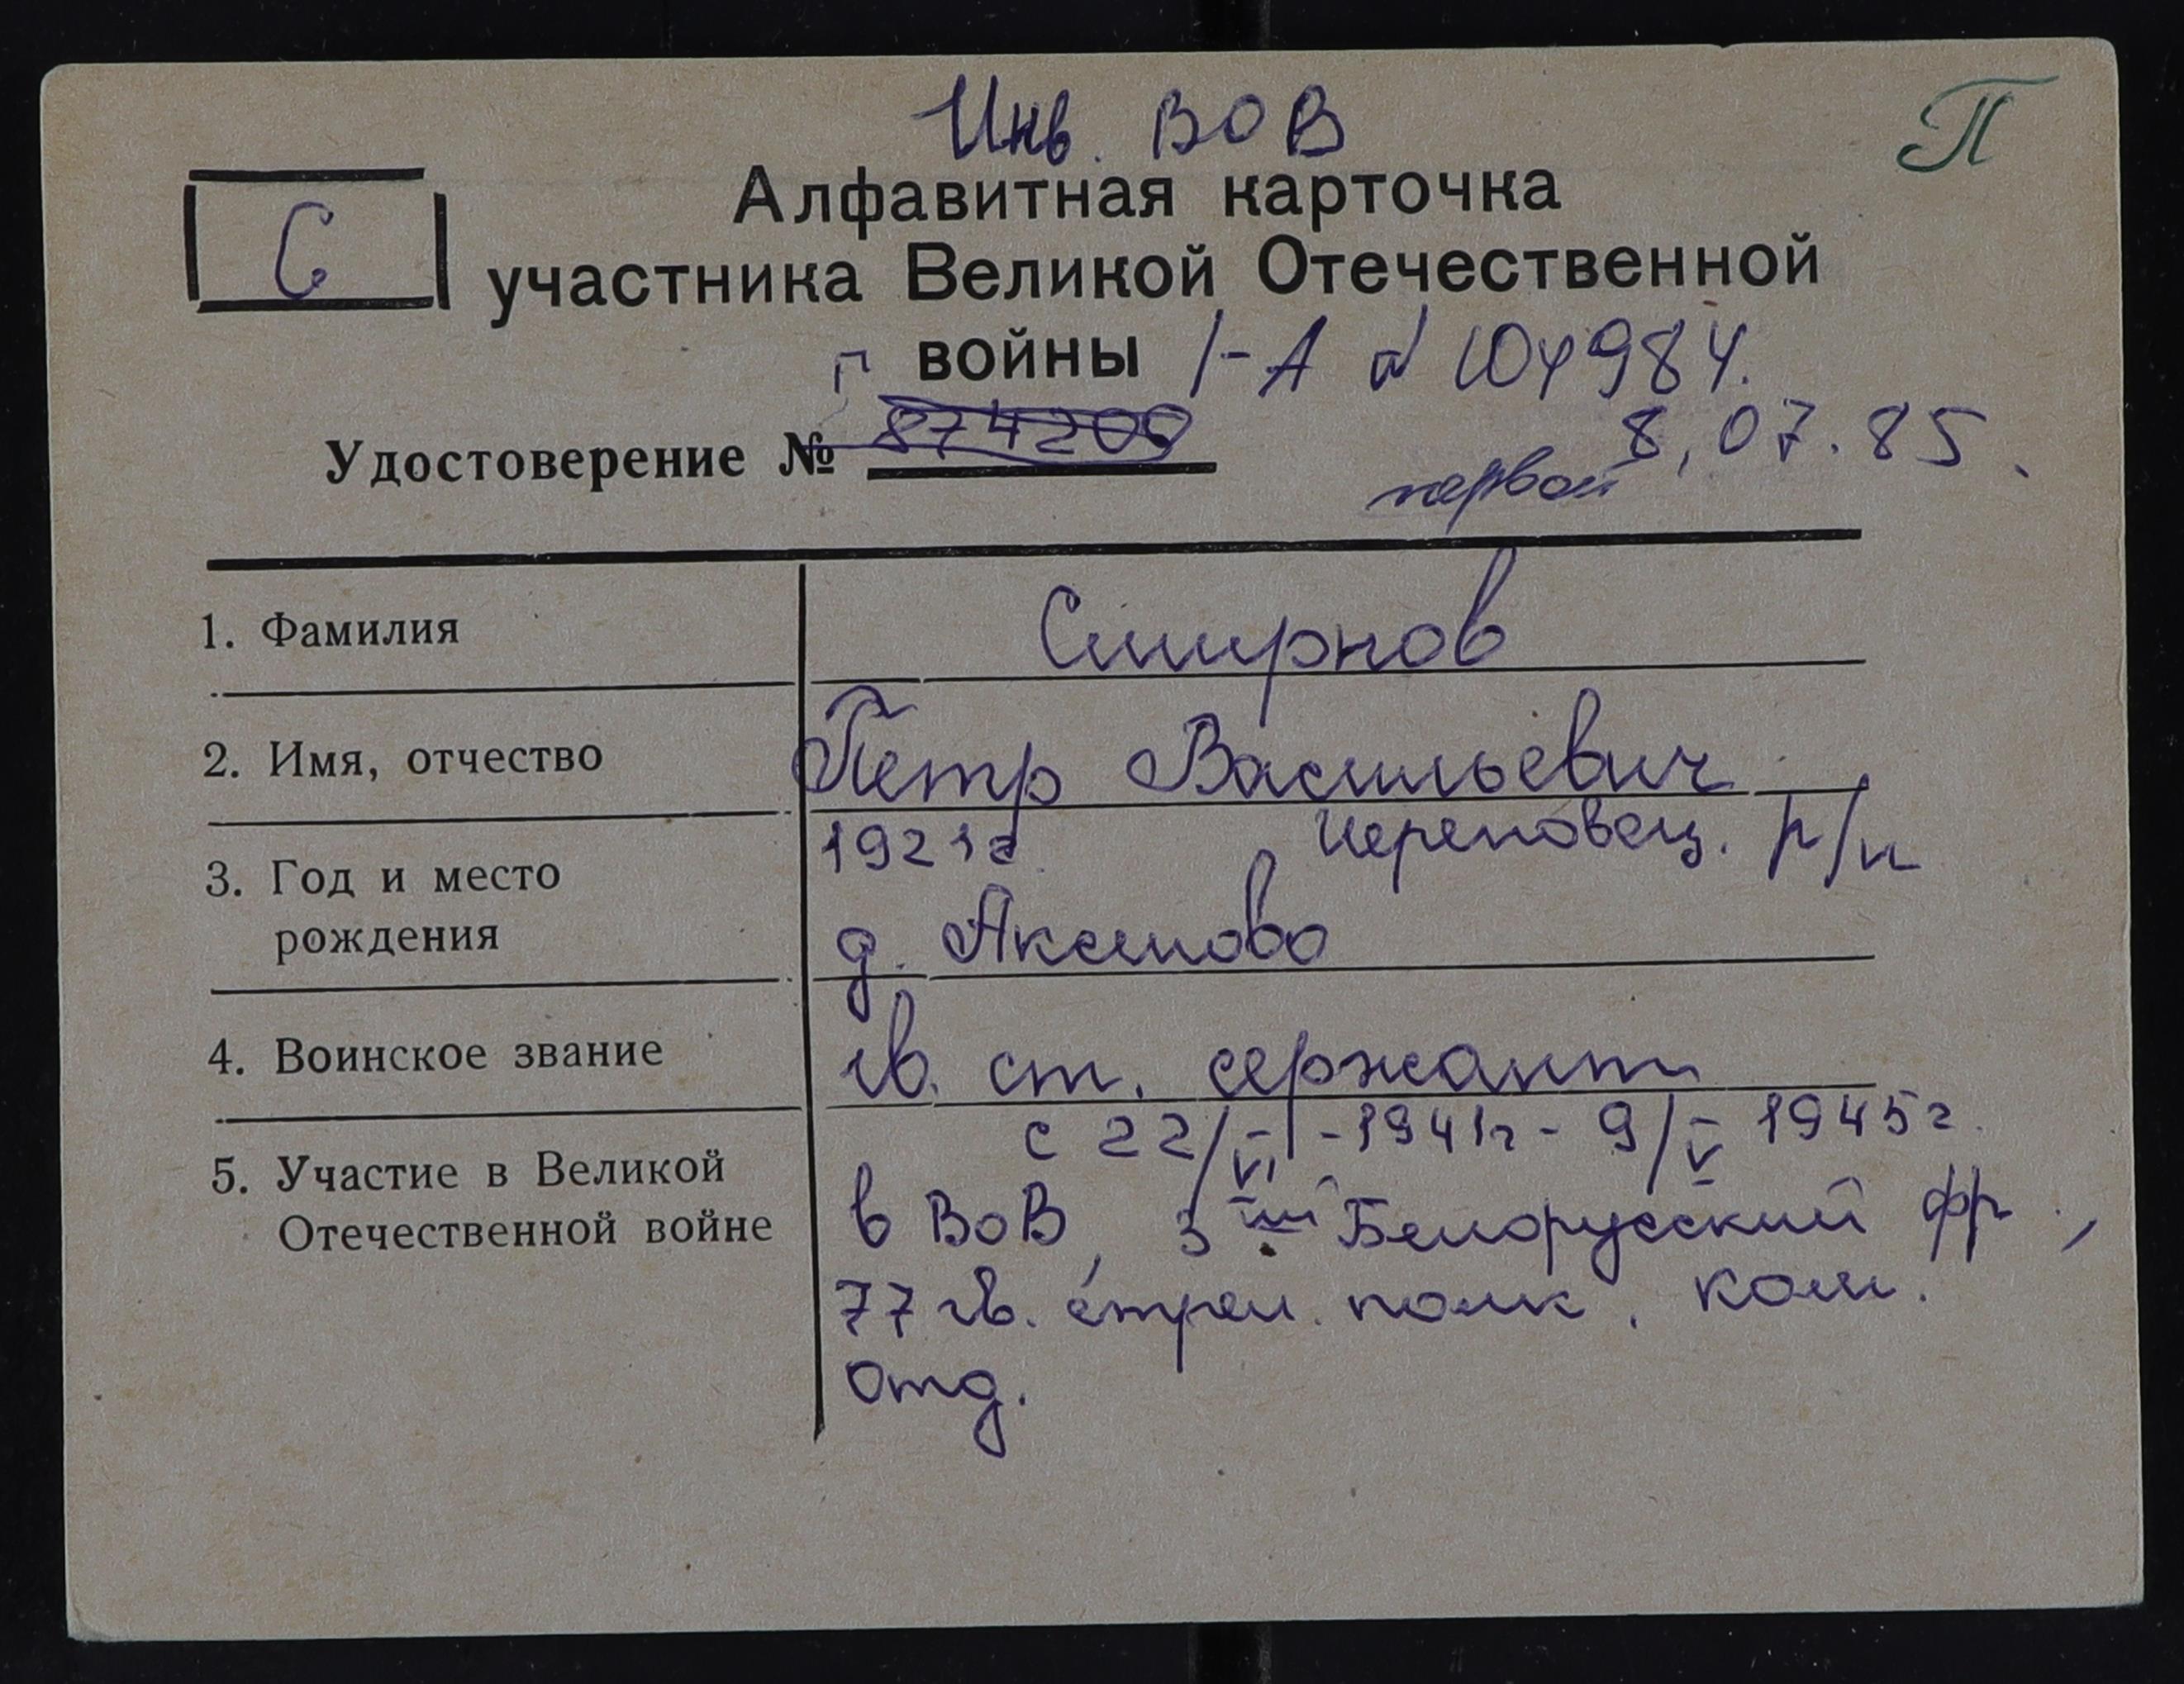 Инв. ВОВ
П
С
Алфавитная карточка
участника Великой Отечественной
войны 1-А № 104984.
Удостоверение № 874200
8,07.85.
первой
1. Фамилия
Смирнов
2. Имя, отчество
Петр Васильевич
3. Год и место
рождения
1921г. Череповец. р/н
д. Аксеново
4. Воинское звание
гв. ст. сержант
5. Участие в Великой
Отечественной войне
с 22/VI-1941г - 9/V 1945г.
в ВОВ, 3ий Белорусский фр.,
77 гв. стрел. полк, ком.
отд.